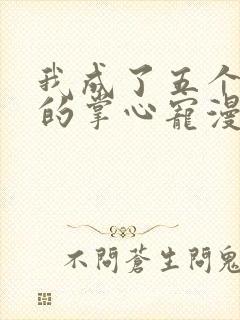 我成了五个
的掌心宠漫
不問蒼生問鬼